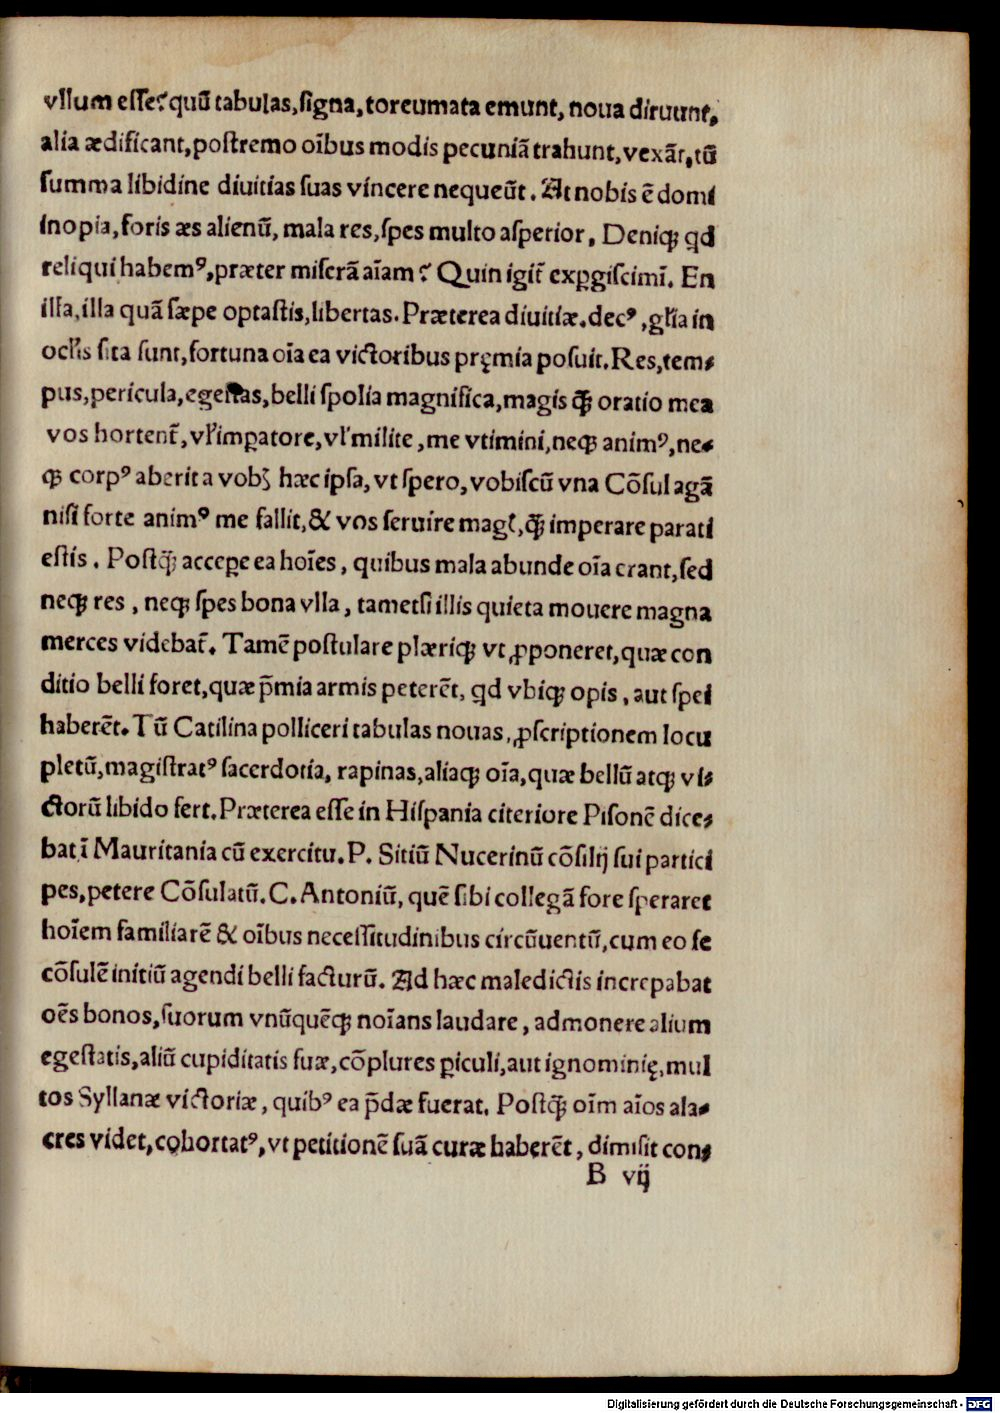 vllum eſſe? quū tabulas, ſigna, toreumata emunt, noua diruunt,
alia ædificant, poſtremo oĩbus modis pecuniã trahunt, vexãt, tū
ſumma libidine diuitias ſuas vincere nequeūt. At nobis ē domi
inopia, foris æs alienū, mala res, ſpes multo aſperior, Deniqꝫ qd
reliqui habemꝰ, præter miſerã aĩam? Quin igit̃ expgiſcimĩ. En
illa, illa quã ſæpe optaſtis, libertas. Præterea diuitiæ. decꝰ, gl̃ia in
ocl̃is ſita ſunt, fortuna oĩa ea victoribus pręmia poſuit. Res, tem⸗
pus, pericula, egeſtas, belli ſpolia magnifica, magis ꝙ̃ oratio mea
vos hortent̃, vl̃ impatore, vl̃ milite, me vtimini, neqꝫ animꝰ, ne⸗
qꝫ corpꝰ aberit a vobꝫ hæc ipſa, vt ſpero, vobiſcū vna Cōſul agã
niſi forte animꝰ me fallit, & vos ſeruire magꝭ, ꝙ̃ imperare parati
eſtis. Poſtꝙ̃ accepe ea hoĩes, quibus mala abunde oĩa erant, ſed
neqꝫ res, neqꝫ ſpes bona vlla, tametſi illis quieta mouere magna
merces videbat̃. Tamē poſtulare plæriqꝫ vt ꝓponeret, quæ con
ditio belli foret, quæ p̃mia armis peterēt, qd vbiqꝫ opis, aut ſpei
haberēt. Tū Catilina polliceri tabulas nouas, ꝓſcriptionem locu
pletū, magiſtratꝰ ſacerdotia, rapinas, aliaqꝫ oĩa, quæ bellū atqꝫ vi⸗
ctorū libido fert. Præterea eſſe in Hiſpania citeriore Piſonē dice⸗
bat, ĩ Mauritania cū exercitu. P. Sitiū Nucerinū cōſilij ſui partici
pes, petere Cōſulatū. C. Antoniū, quē ſibi collegã fore ſperaret
hoĩem familiarē & oĩbus neceſſitudinibus circūuentū, cum eo ſe
cōſulē initiū agendi belli facturū. Ad hæc maledictis increpabat
oēs bonos, ſuorum vnūquēqꝫ noĩans laudare, admonere alium
egeſtatis, aliū cupiditatis ſuæ, cōplures piculi, aut ignominię, mul
tos Syllanæ victoriæ, quibꝰ ea p̃dæ fuerat. Poſtꝙ̃ oĩm aĩos ala⸗
cres videt, cohortatꝰ, vt petitionē ſuã curæ haberēt, dimiſit con⸗
B vij
Digitalisierung gefördert durch die Deutsche Forschungsgemeinschaft - DFG